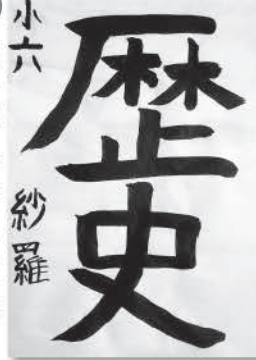 歴史
小六 紗羅